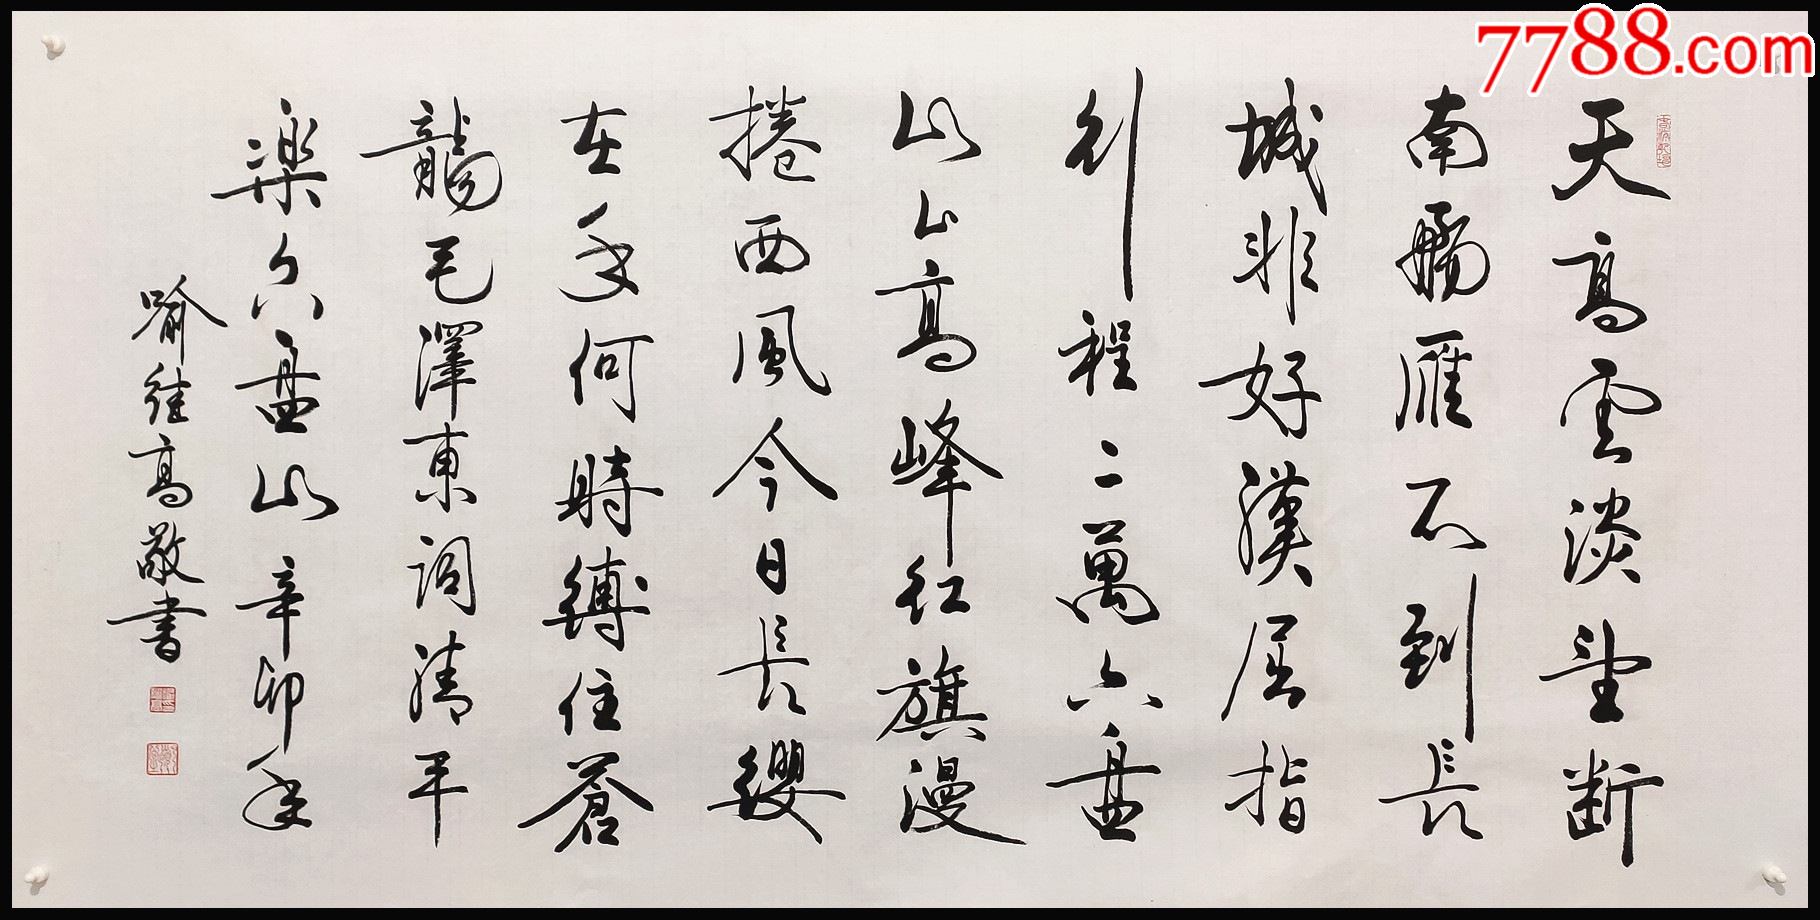 天高雲淡望斷
南飛雁不到長
城非好漢屈指
行程二萬六盤
山上高峰紅旗漫
捲西風今日長纓
在手何時縛住蒼
龍毛澤東詞清平
樂六盤山辛卯年
喻继高敬書
7788.com